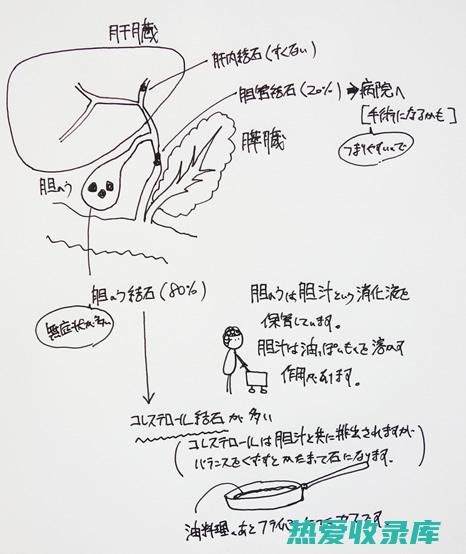 肝臓
肝内結石(すくない)
胆管結石(20%)➡病院へ
[手術になるかも]
つまりやすいので
膵臓
胆のう
胆のう結石(80%)
無症状が多い
胆のうは胆汁という消化液を
保管しています。
胆汁は油っぽいものを溶かす
作用があります。
コレステロール結石が多い
(コレステロールは胆汁と共に排出されますが、
バランスをくずすとかたまって石になります。)
油料理のあとフライパン
热爱收录库